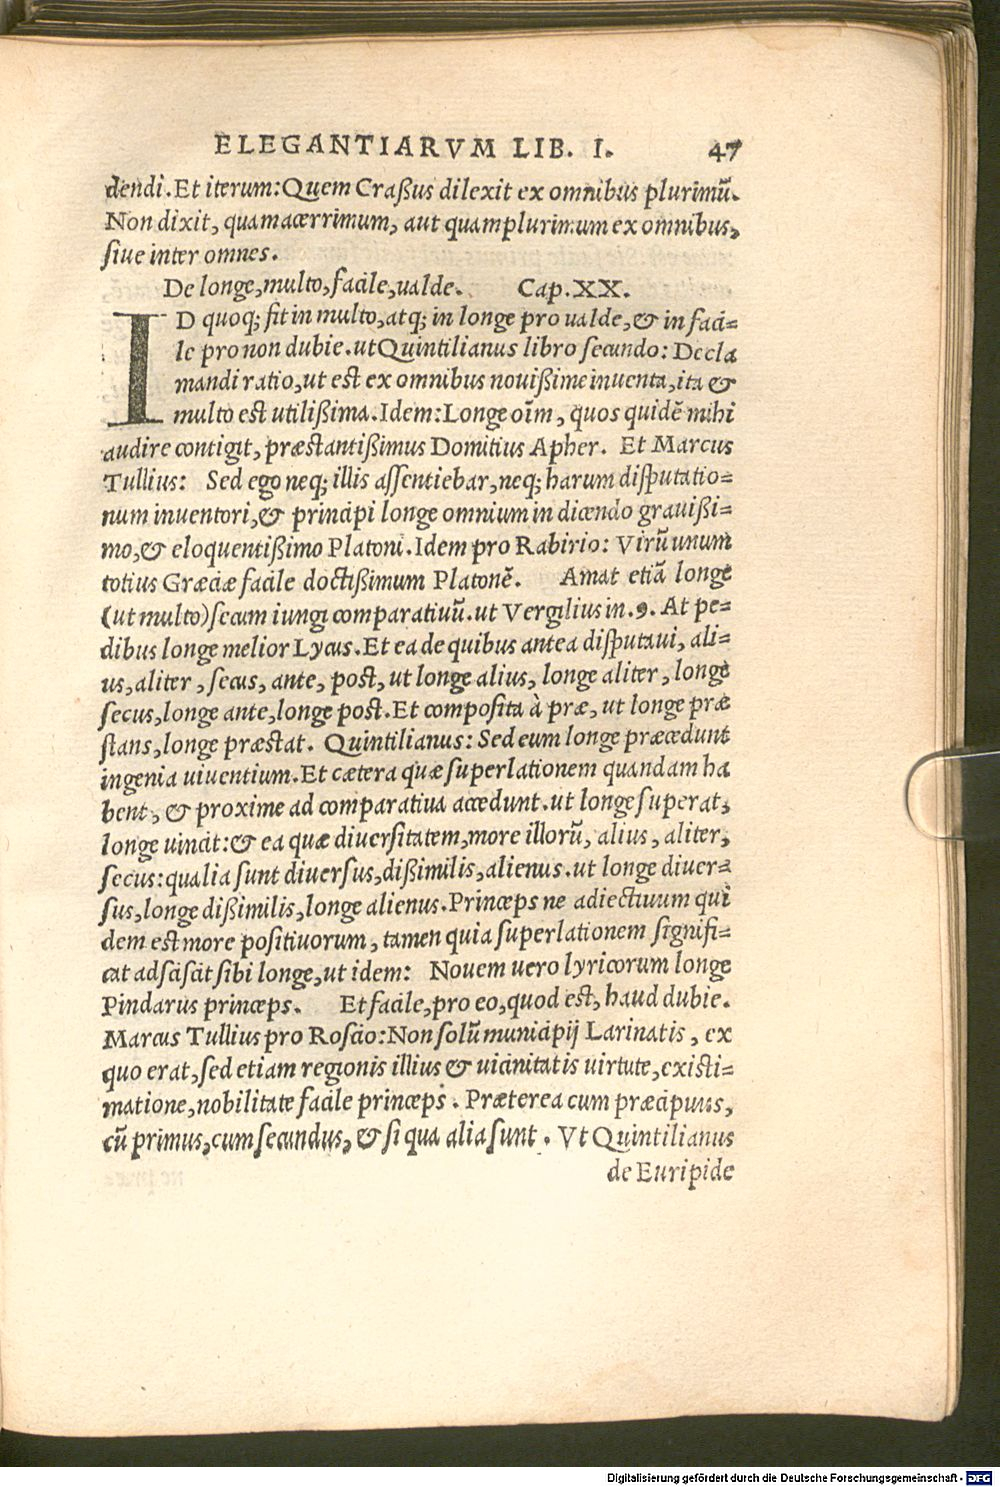 ELEGANTIARVM LIB. I. 47
dendi. Et iterum: Quem Craßus dilexit ex omnibus plurimū.
Non dixit, quam acerrimum, aut quamplurimum ex omnibus,
siue inter omnes.
De longe, multo, facile, ualde. Cap. XX.
ID quoq; fit in multo, atq; in longe pro ualde, & in faci=
le pro non dubie. ut Quintilianus libro secundo: Decla
mandi ratio, ut est ex omnibus nouißime inuenta, ita &
multo est utilißima. Idem: Longe oīm, quos quidē mihi
audire contigit, præstantißimus Domitius Apher. Et Marcus
Tullius: Sed ego neq; illis assentiebar, neq; harum disputatio=
num inuentori, & principi longe omnium in dicendo grauißi=
mo, & eloquentißimo Platoni. Idem pro Rabirio: Virū unum
totius Græciæ facile doctißimum Platonē. Amat etiā longe
(ut multo) secum iungi comparatiuū. ut Vergilius in .9. At pe=
dibus longe melior Lycus. Et ea de quibus antea disputaui, ali=
us, aliter, secus, ante, post, ut longe alius, longe aliter, longe
secus, longe ante, longe post. Et composita à præ, ut longe præ
stans, longe præstat. Quintilianus: Sed eum longe præcedunt
ingenia uiuentium. Et cætera quæ superlationem quandam ha
bent, & proxime ad comparatiua accedunt. ut longe superat,
longe uincit: & ea quæ diuersitatem, more illorū, alius, aliter,
secus: qualia sunt diuersus, dißimilis, alienus. ut longe diuer=
sus, longe dißimilis, longe alienus. Princeps ne adiectiuum qui
dem est more positiuorum, tamen quia superlationem signifi=
cat adsciscit sibi longe, ut idem: Nouem uero lyricorum longe
Pindarus princeps. Et facile, pro eo, quod est, haud dubie.
Marcus Tullius pro Roscio: Non solū municipij Larinatis, ex
quo erat, sed etiam regionis illius & uicinitatis uirtute, existi=
matione, nobilitate facile princeps. Præterea cum præcipuus,
cū primus, cum secundus, & si qua alia sunt. Vt Quintilianus
de Euripide
Digitalisierung gefördert durch die Deutsche Forschungsgemeinschaft - DFG